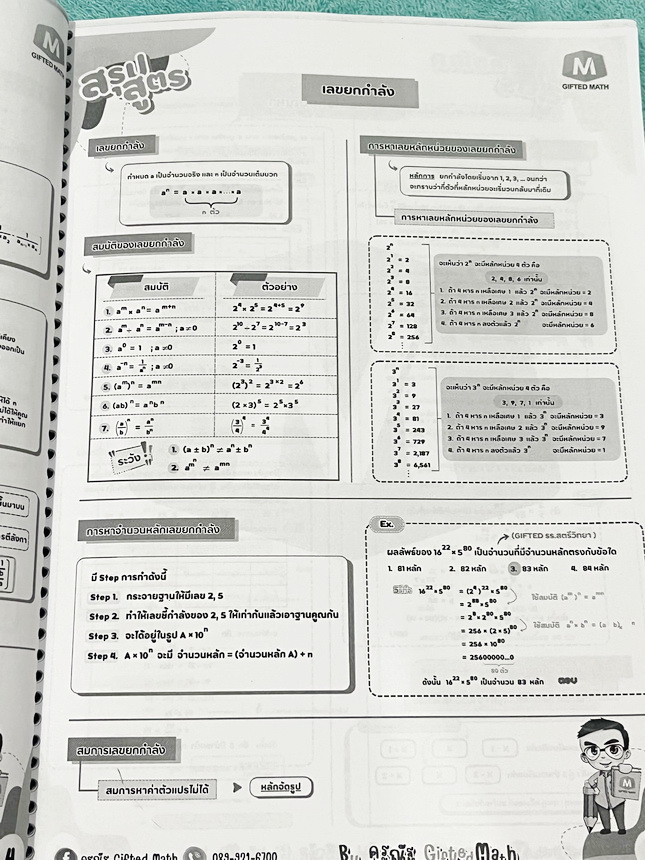 M
GIFTED MATH
สรุปสูตร
เลขยกกำลัง
M
GIFTED MATH
เลขยกกำลัง
กำหนด a เป็นจำนวนจริง และ n เป็นจำนวนเต็มบวก
aⁿ = a × a × a ×...× a
n ตัว
สมบัติของเลขยกกำลัง
สมบัติ ตัวอย่าง
1. aᵐ × aⁿ = aᵐ⁺ⁿ 2⁴ × 2⁵ = 2⁴⁺⁵ = 2⁹
2. aᵐ ÷ aⁿ = aᵐ⁻ⁿ ; a ≠ 0 2¹⁰ ÷ 2⁷ = 2¹⁰⁻⁷ = 2³
3. a⁰ = 1 ; a ≠ 0 2⁰ = 1
4. a⁻ⁿ = 1/aⁿ ; a ≠ 0
5. (aᵐ)ⁿ = aᵐⁿ (2³)² = 2³ˣ² = 2⁶
6. (ab)ⁿ = aⁿbⁿ (2 × 3)⁵ = 2⁵ × 3⁵
7. (a/b)ⁿ = aⁿ/bⁿ
ระวัง!
1. (a ± b)ⁿ ≠ aⁿ ± bⁿ
2. ≠ aᵐⁿ
การหาเลขหลักหน่วยของเลขยกกำลัง
หลักการ ยกกำลังโดยเริ่มจาก 1, 2, 3, ... จนกว่า
จะทราบว่ากี่ตัวที่หลักหน่วยจะเริ่มวนกลับมาที่เดิม
การหาเลขหลักหน่วยของเลขยกกำลัง
2ⁿ
2¹ = 2
2² = 4
2³ = 8
2⁴ = 16
2⁵ = 32
2⁶ = 64
2⁷ = 128
2⁸ = 256
จะเห็นว่า 2ⁿ จะมีหลักหน่วย 4 ตัว คือ
2, 4, 8, 6 เท่านั้น
1. ถ้า 4 หาร n เหลือเศษ 1 แล้ว 2ⁿ จะมีหลักหน่วย = 2
2. ถ้า 4 หาร n เหลือเศษ 2 แล้ว 2ⁿ จะมีหลักหน่วย = 4
3. ถ้า 4 หาร n เหลือเศษ 3 แล้ว 2ⁿ จะมีหลักหน่วย = 8
4. ถ้า 4 หาร n ลงตัวแล้ว 2ⁿ จะมีหลักหน่วย = 6
3ⁿ
3¹ = 3
3² = 9
3³ = 27
3⁴ = 81
3⁵ = 243
3⁶ = 729
3⁷ = 2,187
3⁸ = 6,561
จะเห็นว่า 3ⁿ จะมีหลักหน่วย 4 ตัว คือ
3, 9, 7, 1 เท่านั้น
1. ถ้า 4 หาร n เหลือเศษ 1 แล้ว 3ⁿ จะมีหลักหน่วย = 3
2. ถ้า 4 หาร n เหลือเศษ 2 แล้ว 3ⁿ จะมีหลักหน่วย = 9
3. ถ้า 4 หาร n เหลือเศษ 3 แล้ว 3ⁿ จะมีหลักหน่วย = 7
4. ถ้า 4 หาร n ลงตัวแล้ว 3ⁿ จะมีหลักหน่วย = 1
การหาจำนวนหลักเลขยกกำลัง
มี Step การทำดังนี้
Step 1. กระจายฐานให้มีเลข 2, 5
Step 2. ทำให้เลขชี้กำลังของ 2, 5 ให้เท่ากันแล้วเอาฐานคูณกัน
Step 3. จะได้อยู่ในรูป A × 10ⁿ
Step 4. A × 10ⁿ จะมี จำนวนหลัก = (จำนวนหลัก A) + n
Ex.
(GIFTED รร.สตรีวิทยา)
ผลลัพธ์ของ 16²² × 5⁸⁰ เป็นจำนวนที่มีจำนวนหลักตรงกับข้อใด
1. 81 หลัก 2. 82 หลัก 3. 83 หลัก 4. 84 หลัก
วิธีทำ 16²² × 5⁸⁰ = (2⁴)²² × 5⁸⁰
ใช้สมบัติ (aᵐ)ⁿ = aᵐⁿ
= 2⁸⁸ × 5⁸⁰
= 2⁸ × 2⁸⁰ × 5⁸⁰
ใช้สมบัติ
= 256 × (2 × 5)⁸⁰
= 256 × 10⁸⁰
= 25600000...0
80 ตัว
ดังนั้น 16²² × 5⁸⁰ เป็นจำนวน 83 หลัก ตอบ
สมการเลขยกกำลัง
สมการหาค่าตัวแปรไม่ได้
หลักจัดรูป
M
Gifted Math
By
Gifted Math